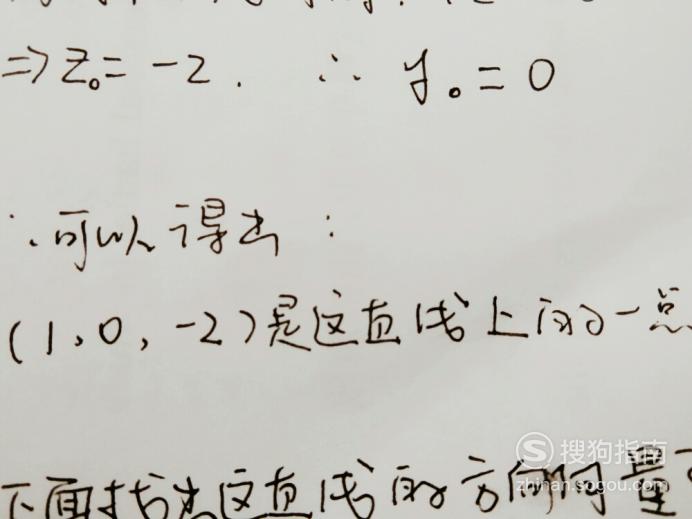 ⇒ z₀ = -2. ∴ y₀ = 0
∴可以得出:
(1, 0, -2)是这直线上的一点
下面找出这直线的方向向量
搜狗指南
zhinan.sogou.com